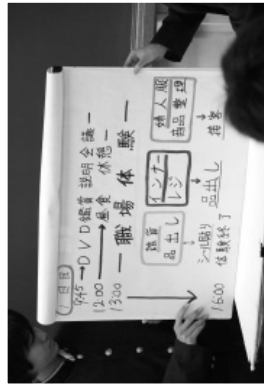 1日目
9:45→DVD鑑賞 説明会議
12:00→昼食 休憩
13:00 ー職場体験ー
婦人服 商品整理 → 接客
インナー レジ → 品出し
品出し → シール貼り
16:00 体験終了